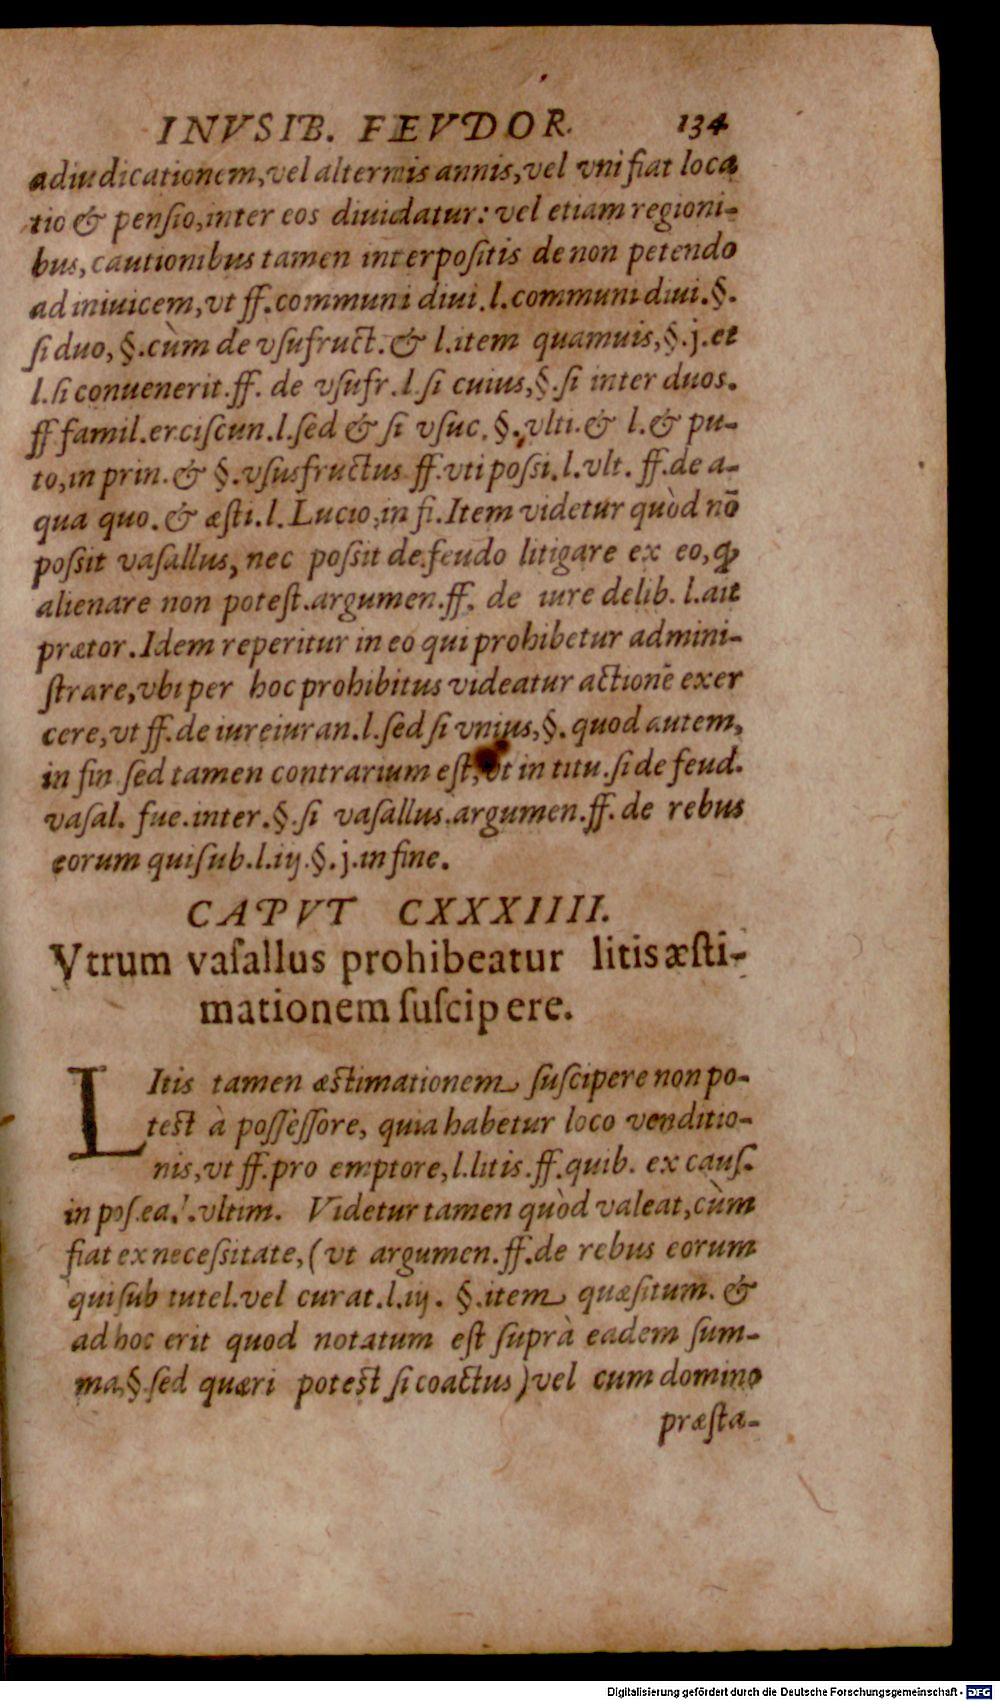 INVSIB. FEVDOR. 134
adiudicationem,vel alternis annis,vel vni fiat loca
tio & pensio,inter eos diuidatur: vel etiam regioni-
bus,cautionibus tamen interpositis de non petendo
ad inuicem,vt ff.communi diui.l.communi diui.§.
si duo, §.cùm de vsufruct.& l.item quamuis,§.j.et
l.si conuenerit.ff. de vsufr.l.si cuius,§.si inter duos.
ff famil.erciscun.l.sed & si vsuc.§.vlti.& l.& pu-
to,in prin.& §.vsusfructus ff.vti possi.l.vlt. ff.de a-
qua quo.& æsti.l.Lucio,in fi.Item videtur quòd nō
possit vasallus, nec possit de feudo litigare ex eo,ꝙ
alienare non potest.argumen.ff. de iure delib. l.ait
prætor.Idem reperitur in eo qui prohibetur admini-
strare,vbi per hoc prohibitus videatur actionē exer
cere,vt ff.de iureiuran.l.sed si vnius,§. quod autem,
in fin sed tamen contrarium est,vt in titu.si de feud.
vasal. fue.inter.§.si vasallus.argumen.ff.de rebus
eorum qui sub.l.iij.§.j.in fine.
CAPVT CXXXIIII.
Vtrum vasallus prohibeatur litis æsti-
mationem suscipere.
LItis tamen æstimationem suscipere non po-
test à possessore, quia habetur loco venditio-
nis,vt ff.pro emptore,l.litis.ff.quib. ex caus.
in pos.ea.l.vltim. Videtur tamen quòd valeat,cùm
fiat ex necessitate,(vt argumen.ff.de rebus eorum
qui sub tutel.vel curat.l.iij. §.item quæsitum. &
ad hoc erit quod notatum est suprà eadem sum-
ma,§.sed quæri potest si coactus)vel cum domino
præsta-
Digitalisierung gefördert durch die Deutsche Forschungsgemeinschaft - DFG